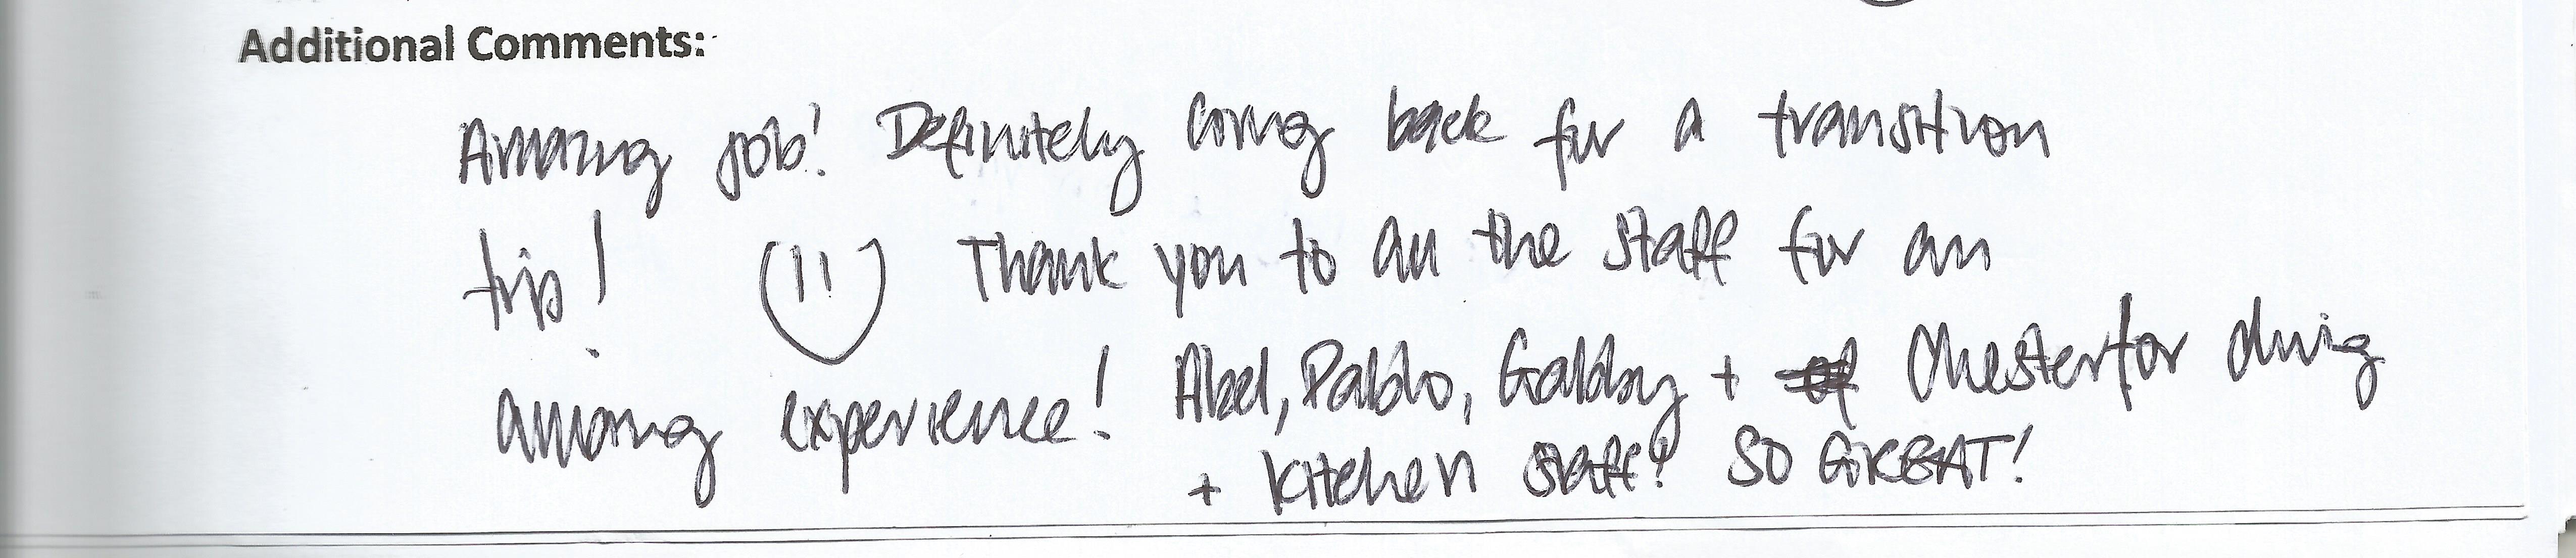 Additional Comments:
Amazing job! Definitely coming back for a transition
trip! Thank you to all the staff for an
amazing experience! Abel, Pablo, Gabby + Chester for diving
+ kitchen staff! SO GREAT!